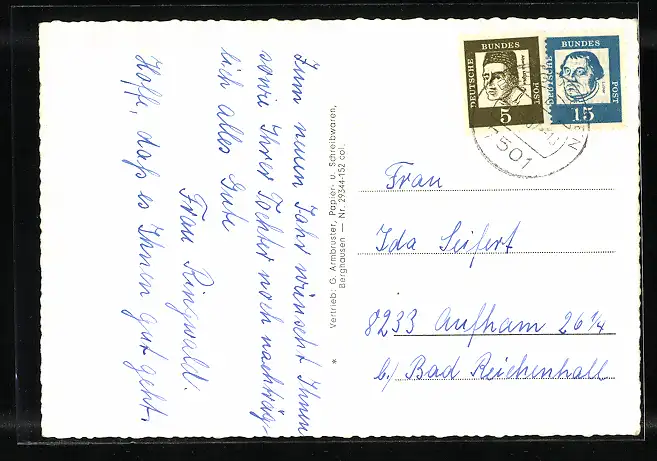 Zum neuen Jahr wünscht Ihnen
sowie Ihrer Tochter noch nachträg-
lich alles Gute
Frau Ringwald.
Hoffe, daß es Ihnen gut geht.
Vertrieb: G. Armbruster, Papier- u. Schreibwaren,
Berghausen — Nr. 29344-152 col.
DEUTSCHE
BUNDES
POST
5
DEUTSCHE
BUNDES
POST
15
7501
Frau
Ida Seifert
8233 Aufham 26 1/4
b/ Bad Reichenhall